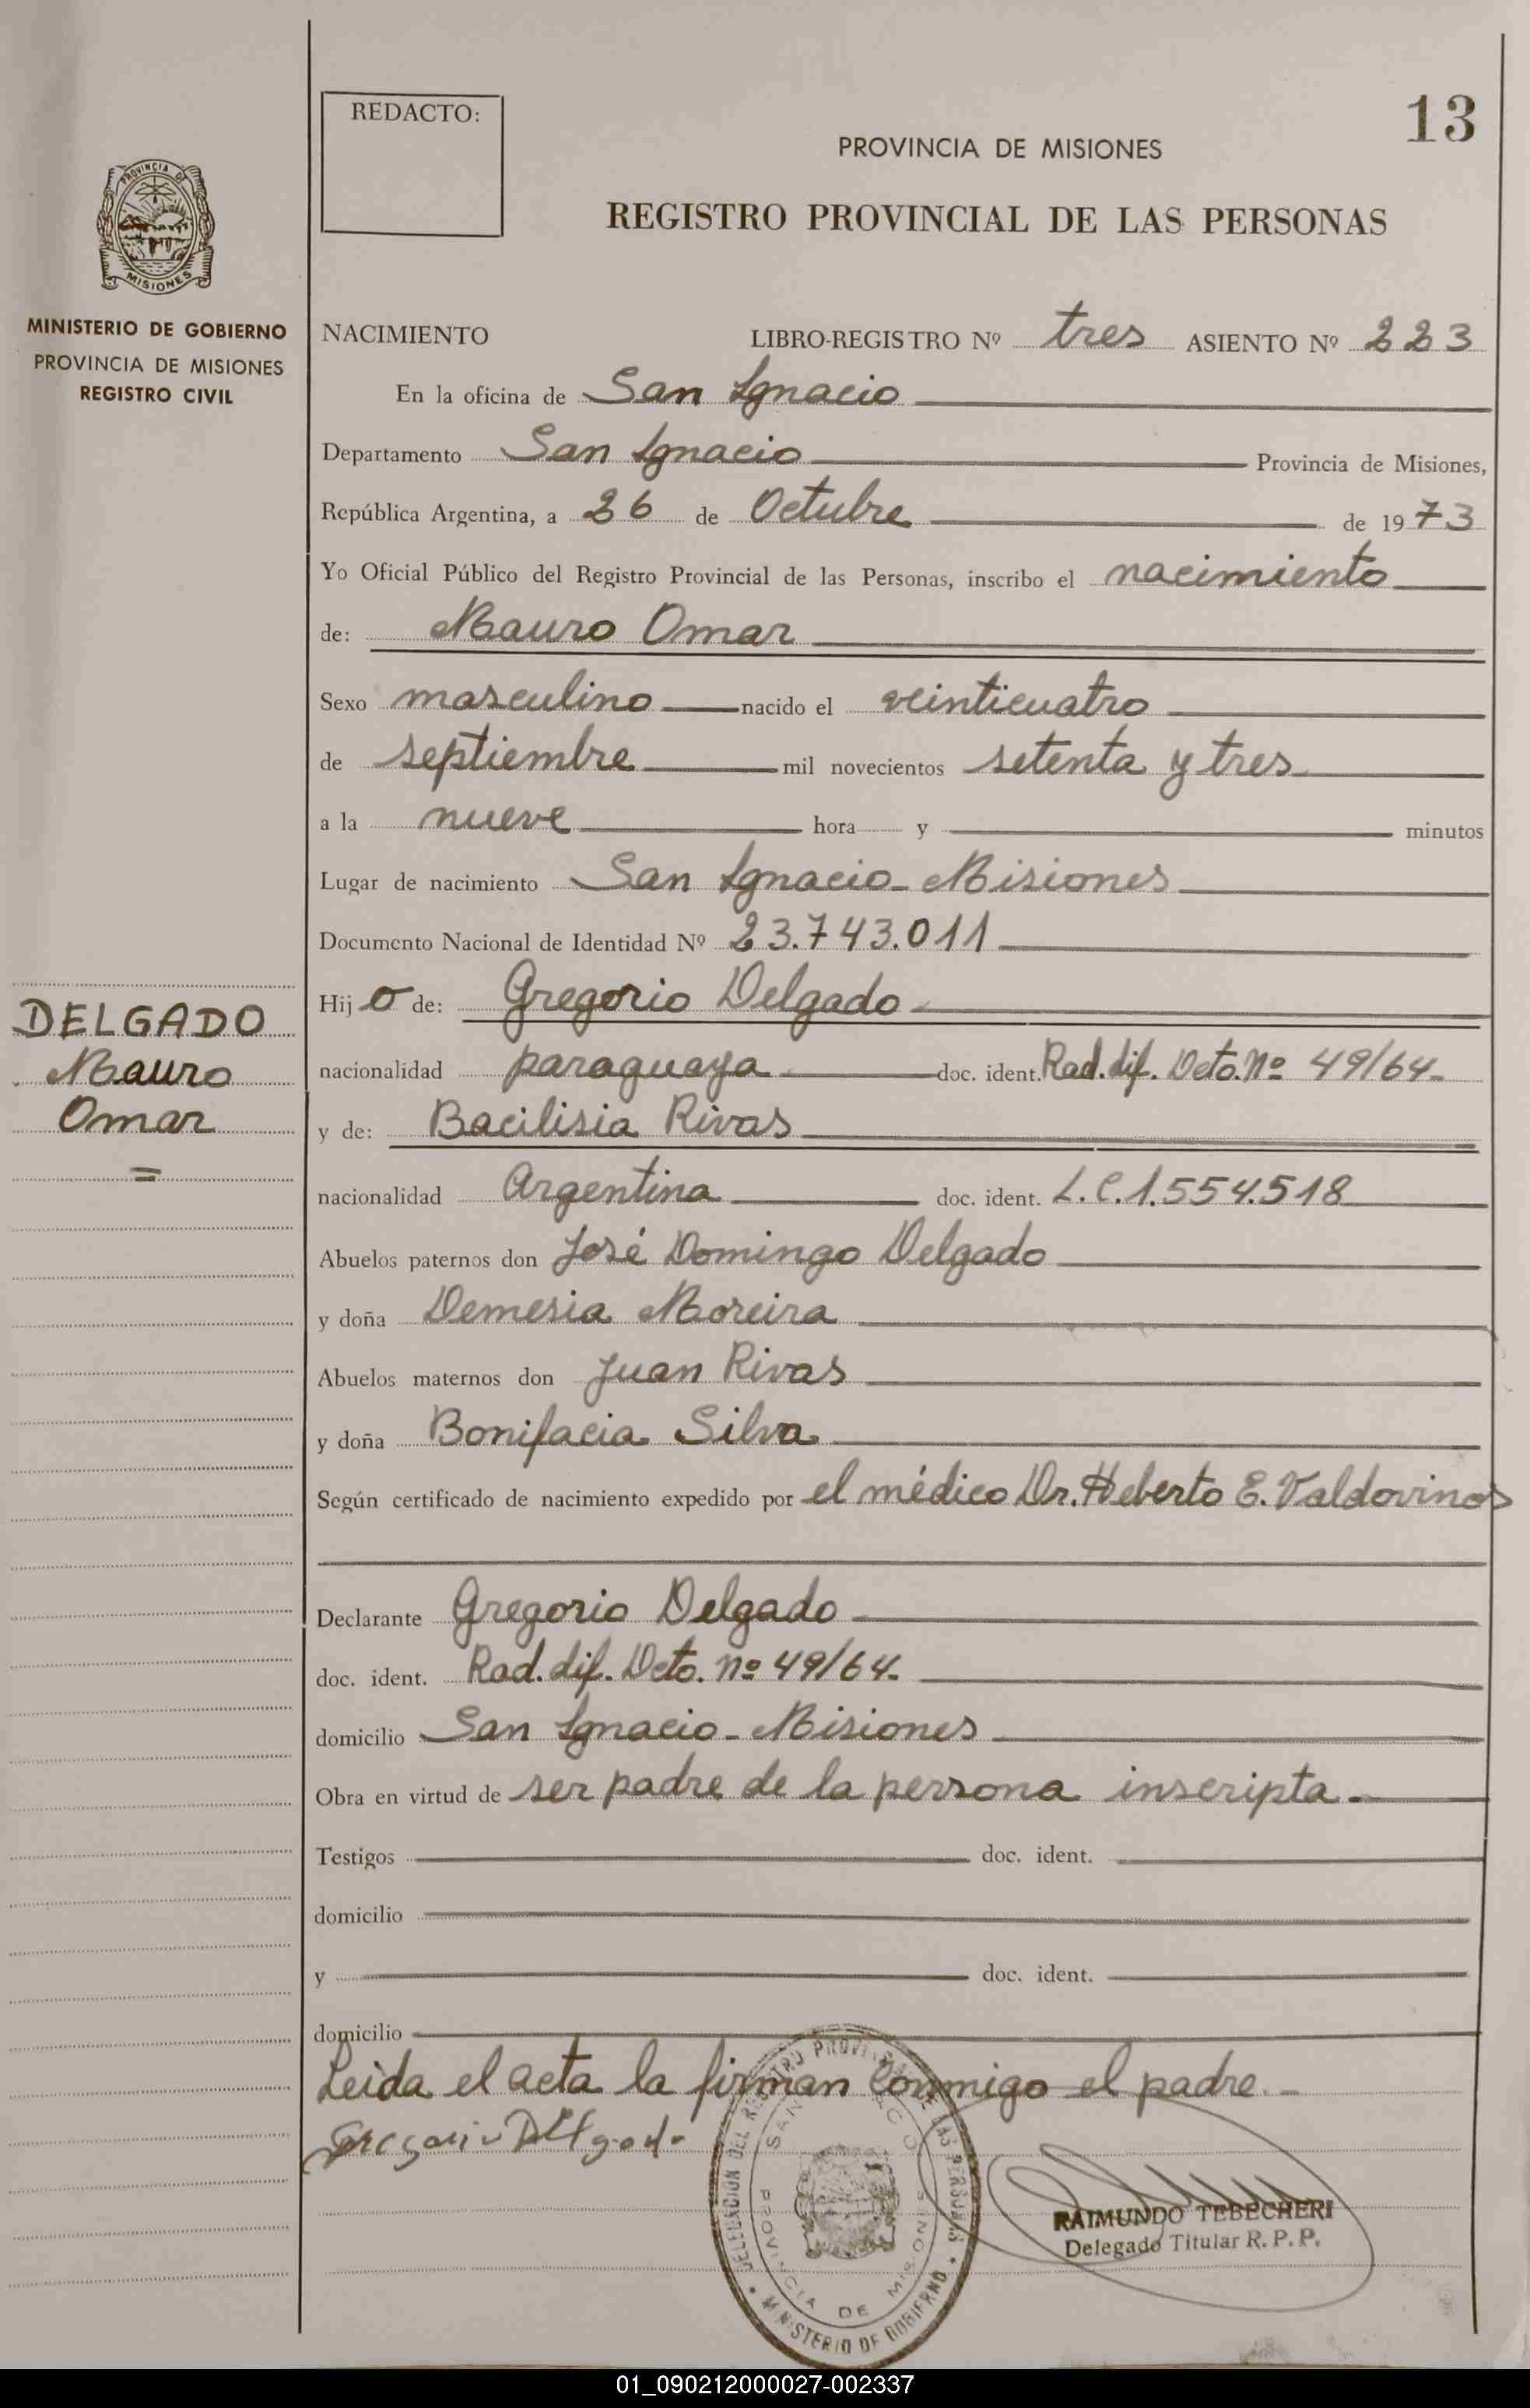 REDACTO:
13
PROVINCIA DE MISIONES
REGISTRO PROVINCIAL DE LAS PERSONAS
PROVINCIA DE
MISIONES
MINISTERIO DE GOBIERNO
PROVINCIA DE MISIONES
REGISTRO CIVIL
NACIMIENTO LIBRO-REGISTRO Nº tres ASIENTO Nº 223
En la oficina de San Ignacio
Departamento San Ignacio Provincia de Misiones,
República Argentina, a 26 de Octubre de 1973
Yo Oficial Público del Registro Provincial de las Personas, inscribo el nacimiento
de: Mauro Omar
Sexo masculino nacido el veinticuatro
de septiembre mil novecientos setenta y tres
a la nueve hora y minutos
Lugar de nacimiento San Ignacio - Misiones
Documento Nacional de Identidad Nº 23.743.011
DELGADO
Mauro
Omar
=
Hijo de: Gregorio Delgado
nacionalidad paraguaya doc. ident. Rad. dif. Dcto. nº 49/64-
y de: Bacilisia Rivas
nacionalidad Argentina doc. ident. L.C. 1.554.518
Abuelos paternos don José Domingo Delgado
y doña Demesia Moreira
Abuelos maternos don Juan Rivas
y doña Bonifacia Silva
Según certificado de nacimiento expedido por el médico Dr. Heberto E. Valdovinos
Declarante Gregorio Delgado
doc. ident. Rad. dif. Dcto. nº 49/64-
domicilio San Ignacio - Misiones
Obra en virtud de ser padre de la persona inscripta.-
Testigos doc. ident.
domicilio
y doc. ident.
domicilio
Leida el acta la firman conmigo el padre.-
Gregorio Delgado
DELEGACION DEL REGISTRO PROVINCIAL DE LAS PERSONAS
MINISTERIO DE GOBIERNO
PROVINCIA DE MISIONES
RAIMUNDO TEBECHERI
Delegado Titular R. P. P.
01_090212000027-002337